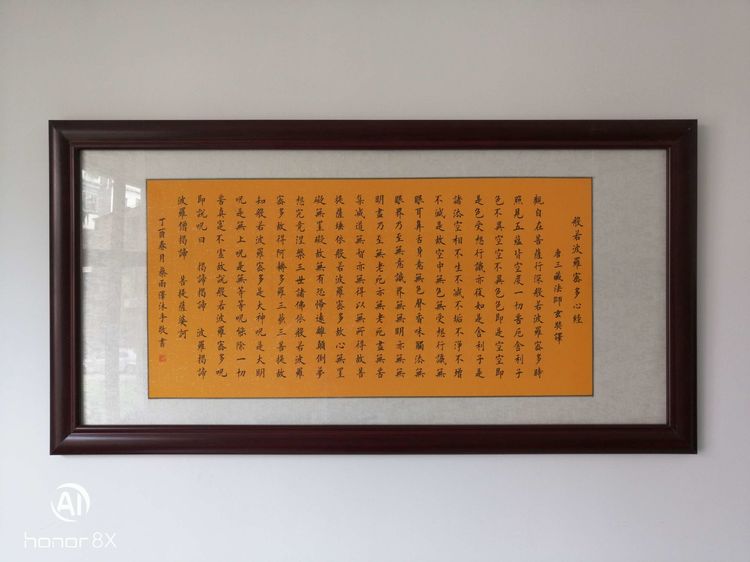 般若波羅蜜多心經
唐三藏法師玄奘譯
觀自在菩薩行深般若波羅蜜多時
照見五蘊皆空度一切苦厄舍利子
色不異空空不異色色即是空空即
是色受想行識亦復如是舍利子是
諸法空相不生不滅不垢不淨不增
不減是故空中無色無受想行識無
眼耳鼻舌身意無色聲香味觸法無
眼界乃至無意識界無無明亦無無
明盡乃至無老死亦無老死盡無苦
集滅道無智亦無得以無所得故菩
提薩埵依般若波羅蜜多故心無罣
礙無罣礙故無有恐怖遠離顛倒夢
想究竟涅槃三世諸佛依般若波羅
蜜多故得阿耨多羅三藐三菩提故
知般若波羅蜜多是大神呪是大明
呪是無上呪是無等等呪能除一切
苦真實不虛故說般若波羅蜜多呪
即說呪曰 揭諦揭諦 波羅揭諦
波羅僧揭諦 菩提薩婆訶
丁酉春月桑雨澤沐手敬書
AI
honor 8X